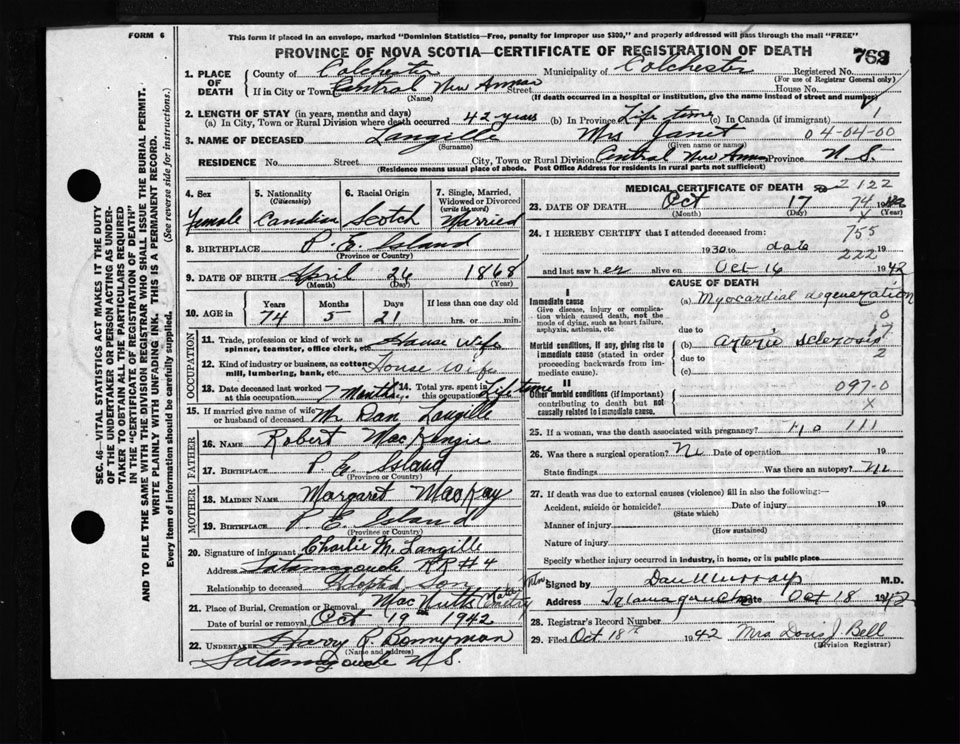 FORM 6
This form if placed in an envelope, marked "Dominion Statistics—Free, penalty for improper use $300," and properly addressed will pass through the mail "FREE"
PROVINCE OF NOVA SCOTIA—CERTIFICATE OF REGISTRATION OF DEATH
762
1. PLACE OF DEATH
County of Colchester Municipality of Colchester Registered No.
(For use of Registrar General only)
If in City or Town Central New Annan Street House No.
(Name) (If death occurred in a hospital or institution, give the name instead of street and number)
2. LENGTH OF STAY (in years, months and days)
(a) In City, Town or Rural Division where death occurred 42 years (b) In Province Life time (c) In Canada (if immigrant) 1
3. NAME OF DECEASED Langille Mrs Janet 04-04-00
(Surname) (Given name or names)
RESIDENCE No. Street City, Town or Rural Division Central New Annan Province N S.
(Residence means usual place of abode. Post Office Address for residents in rural parts not sufficient)
SEC. 46—VITAL STATISTICS ACT MAKES IT THE DUTY
OF THE UNDERTAKER OR PERSON ACTING AS UNDER-
TAKER TO OBTAIN ALL THE PARTICULARS REQUIRED
IN THE "CERTIFICATE OF REGISTRATION OF DEATH"
AND TO FILE THE SAME WITH THE DIVISION REGISTRAR WHO SHALL ISSUE THE BURIAL PERMIT.
WRITE PLAINLY WITH UNFADING INK. THIS IS A PERMANENT RECORD.
Every item of Information should be carefully supplied. (See reverse side for instructions.)
4. Sex Female
5. Nationality (Citizenship) Canadian
6. Racial Origin Scotch
7. Single, Married, Widowed or Divorced (write the word) Married
8. BIRTHPLACE P. E. Island
(Province or Country)
9. DATE OF BIRTH April 26 1868
(Month) (Day) (Year)
10. AGE in Years 74 Months 5 Days 21 If less than one day old hrs. or min.
OCCUPATION
11. Trade, profession or kind of work as spinner, teamster, office clerk, etc. House wife
12. Kind of industry or business, as cotton mill, lumbering, bank, etc. House wife
13. Date deceased last worked at this occupation 7 Months. 14. Total yrs. spent in this occupation Life time
15. If married give name of wife or husband of deceased Mr Dan Langille
FATHER
16. NAME Robert MacKenzie
17. BIRTHPLACE P E Island
(Province or Country)
MOTHER
18. MAIDEN NAME Margaret MacKay
19. BIRTHPLACE P E Island
(Province or Country)
20. Signature of informant Charlie M. Langille
Address Tatamagouche RR#4
Relationship to deceased Adopted Son
21. Place of Burial, Cremation or Removal Mac Nutts
Date of burial or removal Oct 19 1942
22. UNDERTAKER Harry R Bonnyman
(Name and address)
Tatamagouche N S.
MEDICAL CERTIFICATE OF DEATH 2122
23. DATE OF DEATH Oct 17 74
(Month) (Day) (Year)
24. I HEREBY CERTIFY that I attended deceased from: 755
1930 to date 19
222
and last saw her alive on Oct 16 1942
CAUSE OF DEATH
I
Immediate cause
Give disease, injury or complication which caused death, not the mode of dying, such as heart failure, asphyxia, asthenia, etc
(a) Myocardial degeneration
0
due to
Morbid conditions, if any, giving rise to immediate cause (stated in order proceeding backwards from immediate cause).
(b) Arterio sclerosis 17
due to 2
(c)
II
Other morbid conditions (if important) contributing to death but not causally related to immediate cause.
097-0
X
25. If a woman, was the death associated with pregnancy? no 111
26. Was there a surgical operation? No Date of operation 19
State findings Was there an autopsy? No
27. If death was due to external causes (violence) fill in also the following:—
Accident, suicide or homicide? Date of injury 19
(State which)
Manner of injury
(How sustained)
Nature of injury
Specify whether injury occurred in industry, in home, or in public place
Signed by Dan Murray M.D.
Address Tatamagouche Date Oct 18 1942
28. Registrar's Record Number
29. Filed Oct 18th 1942 Mrs Doris J Bell
(Division Registrar)